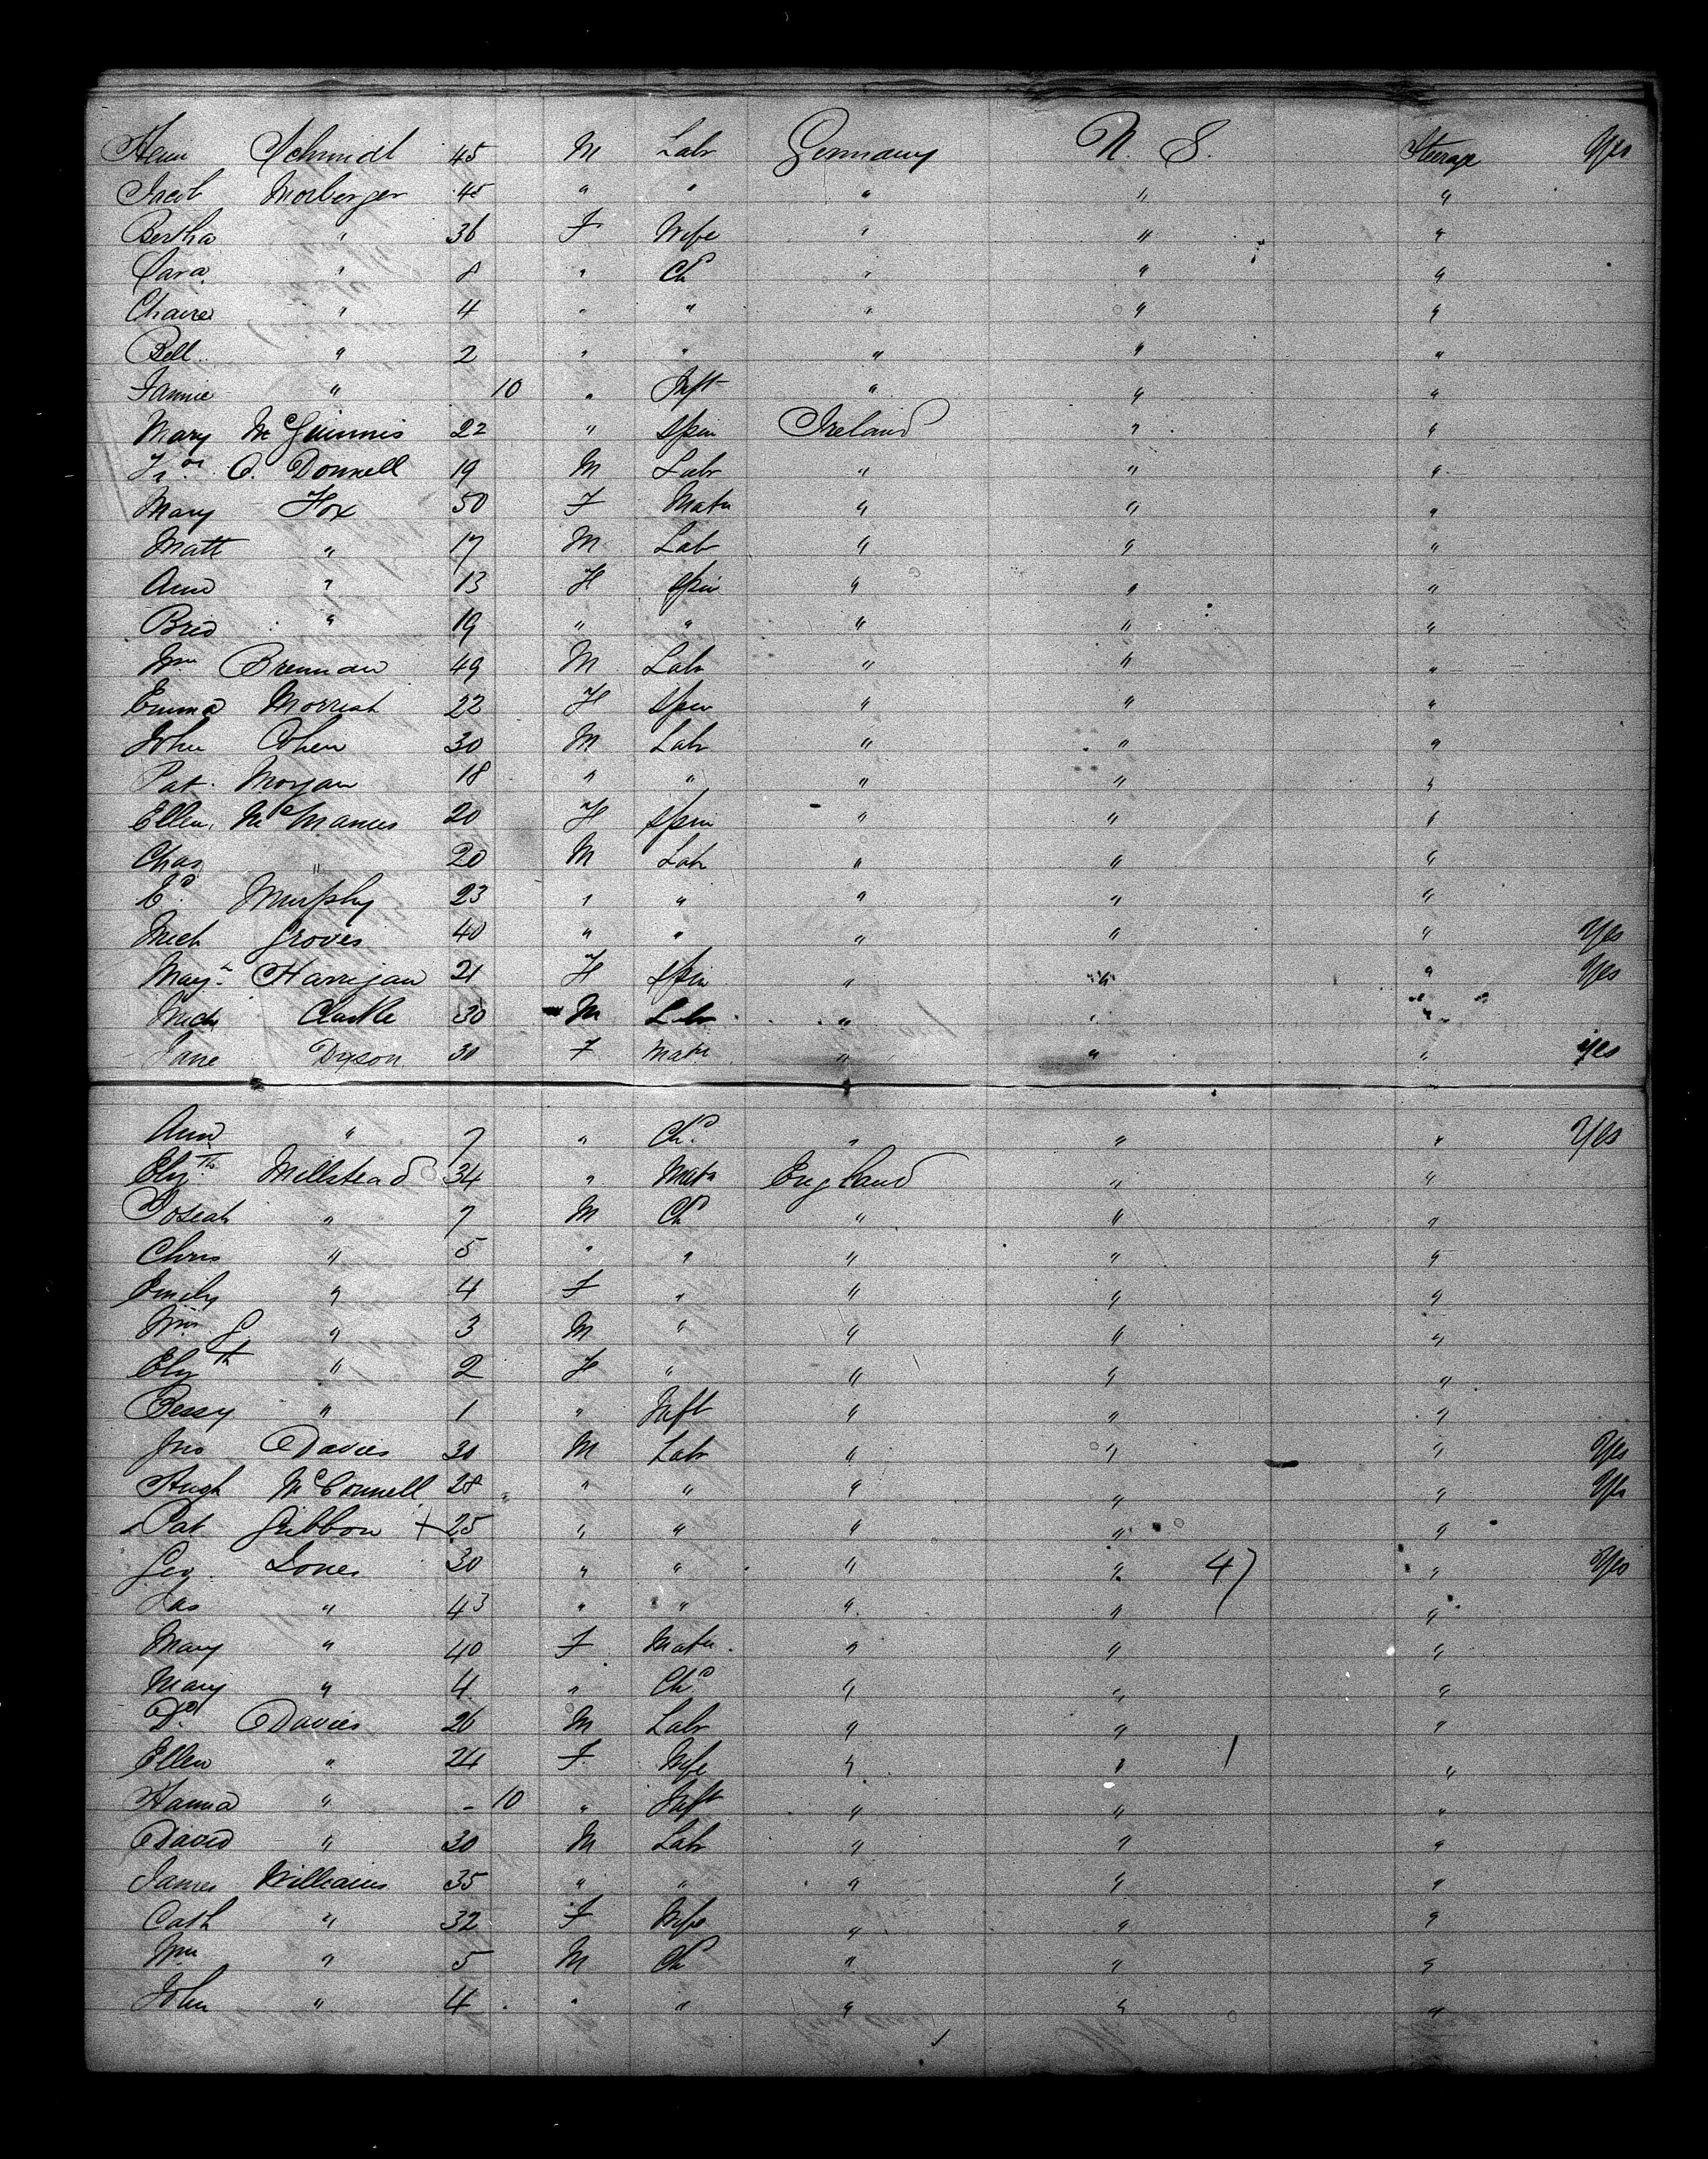 Henr Schmidt 45 M Labr Germany U. S. Steerage Yes
Jacob Morberger 45 " " " " "
Bertha " 36 F Wife " " "
Sara " 8 " Chd " " "
" 4 " " " " "
Bell " 2 " " " " "
Fannie " 10 " Inft " " "
Mary McGuinnis 22 " Spin Ireland " "
O. Donnell 19 M Labr " " "
Mary Fox 50 F Matn " " "
Matt " 17 M Labr " " "
Ann " 13 F Spin " " "
Brid " 19 " " " " "
Wm Brennan 49 M Labr " " "
Emma Morriat 22 F Spin " " "
John Cohen 30 M Labr " " "
Pat. Morgan 18 " " " " "
Ellen McManus 20 F Spin " " "
Chas " 20 M Labr " " "
Ed. Murphy 23 " " " " "
Mich Groves 40 " " " " " Yes
Magt Harrigan 21 F Spin " " " Yes
Mich Clarke 30 M Labr " " "
Jane Dyson 30 F Matn " " " Yes
Ann " 7 " Chd. " " " Yes
Elizth Millstead 34 " Matn England " "
Josiah " 7 M Chd " " "
Chris " 5 " " " " "
Emily " 4 F " " " "
Wm G " 3 M " " " "
Elizth " 2 F " " " "
Bessy " 1 " Inft " " "
Jno Davies 30 M Labr " " " Yes
Hugh McConnell 28 " " " " " " Yes
Pat Gibbon + 25 " " " " "
Geo. Jones 30 " " " " 47 " Yes
Jas " 43 " " " " "
Mary " 40 F Matn. " " "
Mary " 4 " Chd " " "
Dd. Davies 26 M Labr " " "
Ellen " 24 F Wife " " 1 "
Hanna " - 10 " Inft " " "
David " 30 M Labr " " "
James Williams 35 " " " " "
Cath " 32 F Wife " " "
Wm " 5 M Chd " " "
John " 4 " " " " "